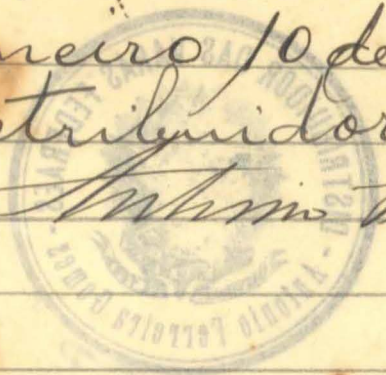 neiro 10 de
stribuidor
Antonio
DISTRIBUIDOR DAS VARAS FEDERAES
- Antonio Ferreira Gomes -